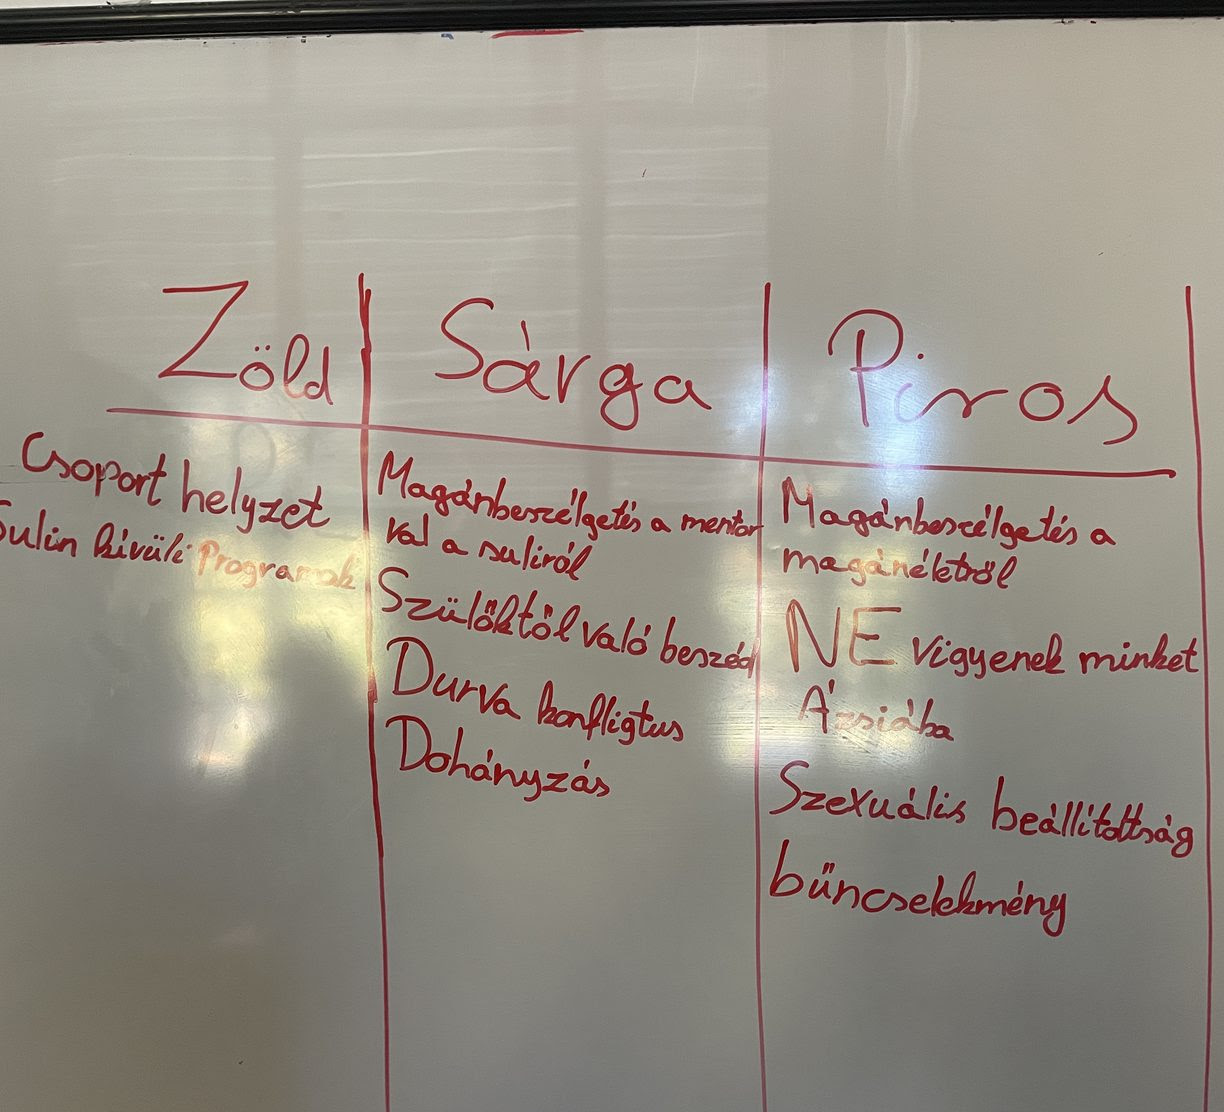 Zöld
Csoport helyzet
Sulin kívüli Programok
Sárga
Magánbeszélgetés a mentor
val a suliról
Szülőktől való beszéd
Durva konfligtus
Dohányzás
Piros
Magánbeszélgetés a
magánéletről
NE vigyenek minket
Ázsiába
Szexuális beállítottság
bűncselekmény